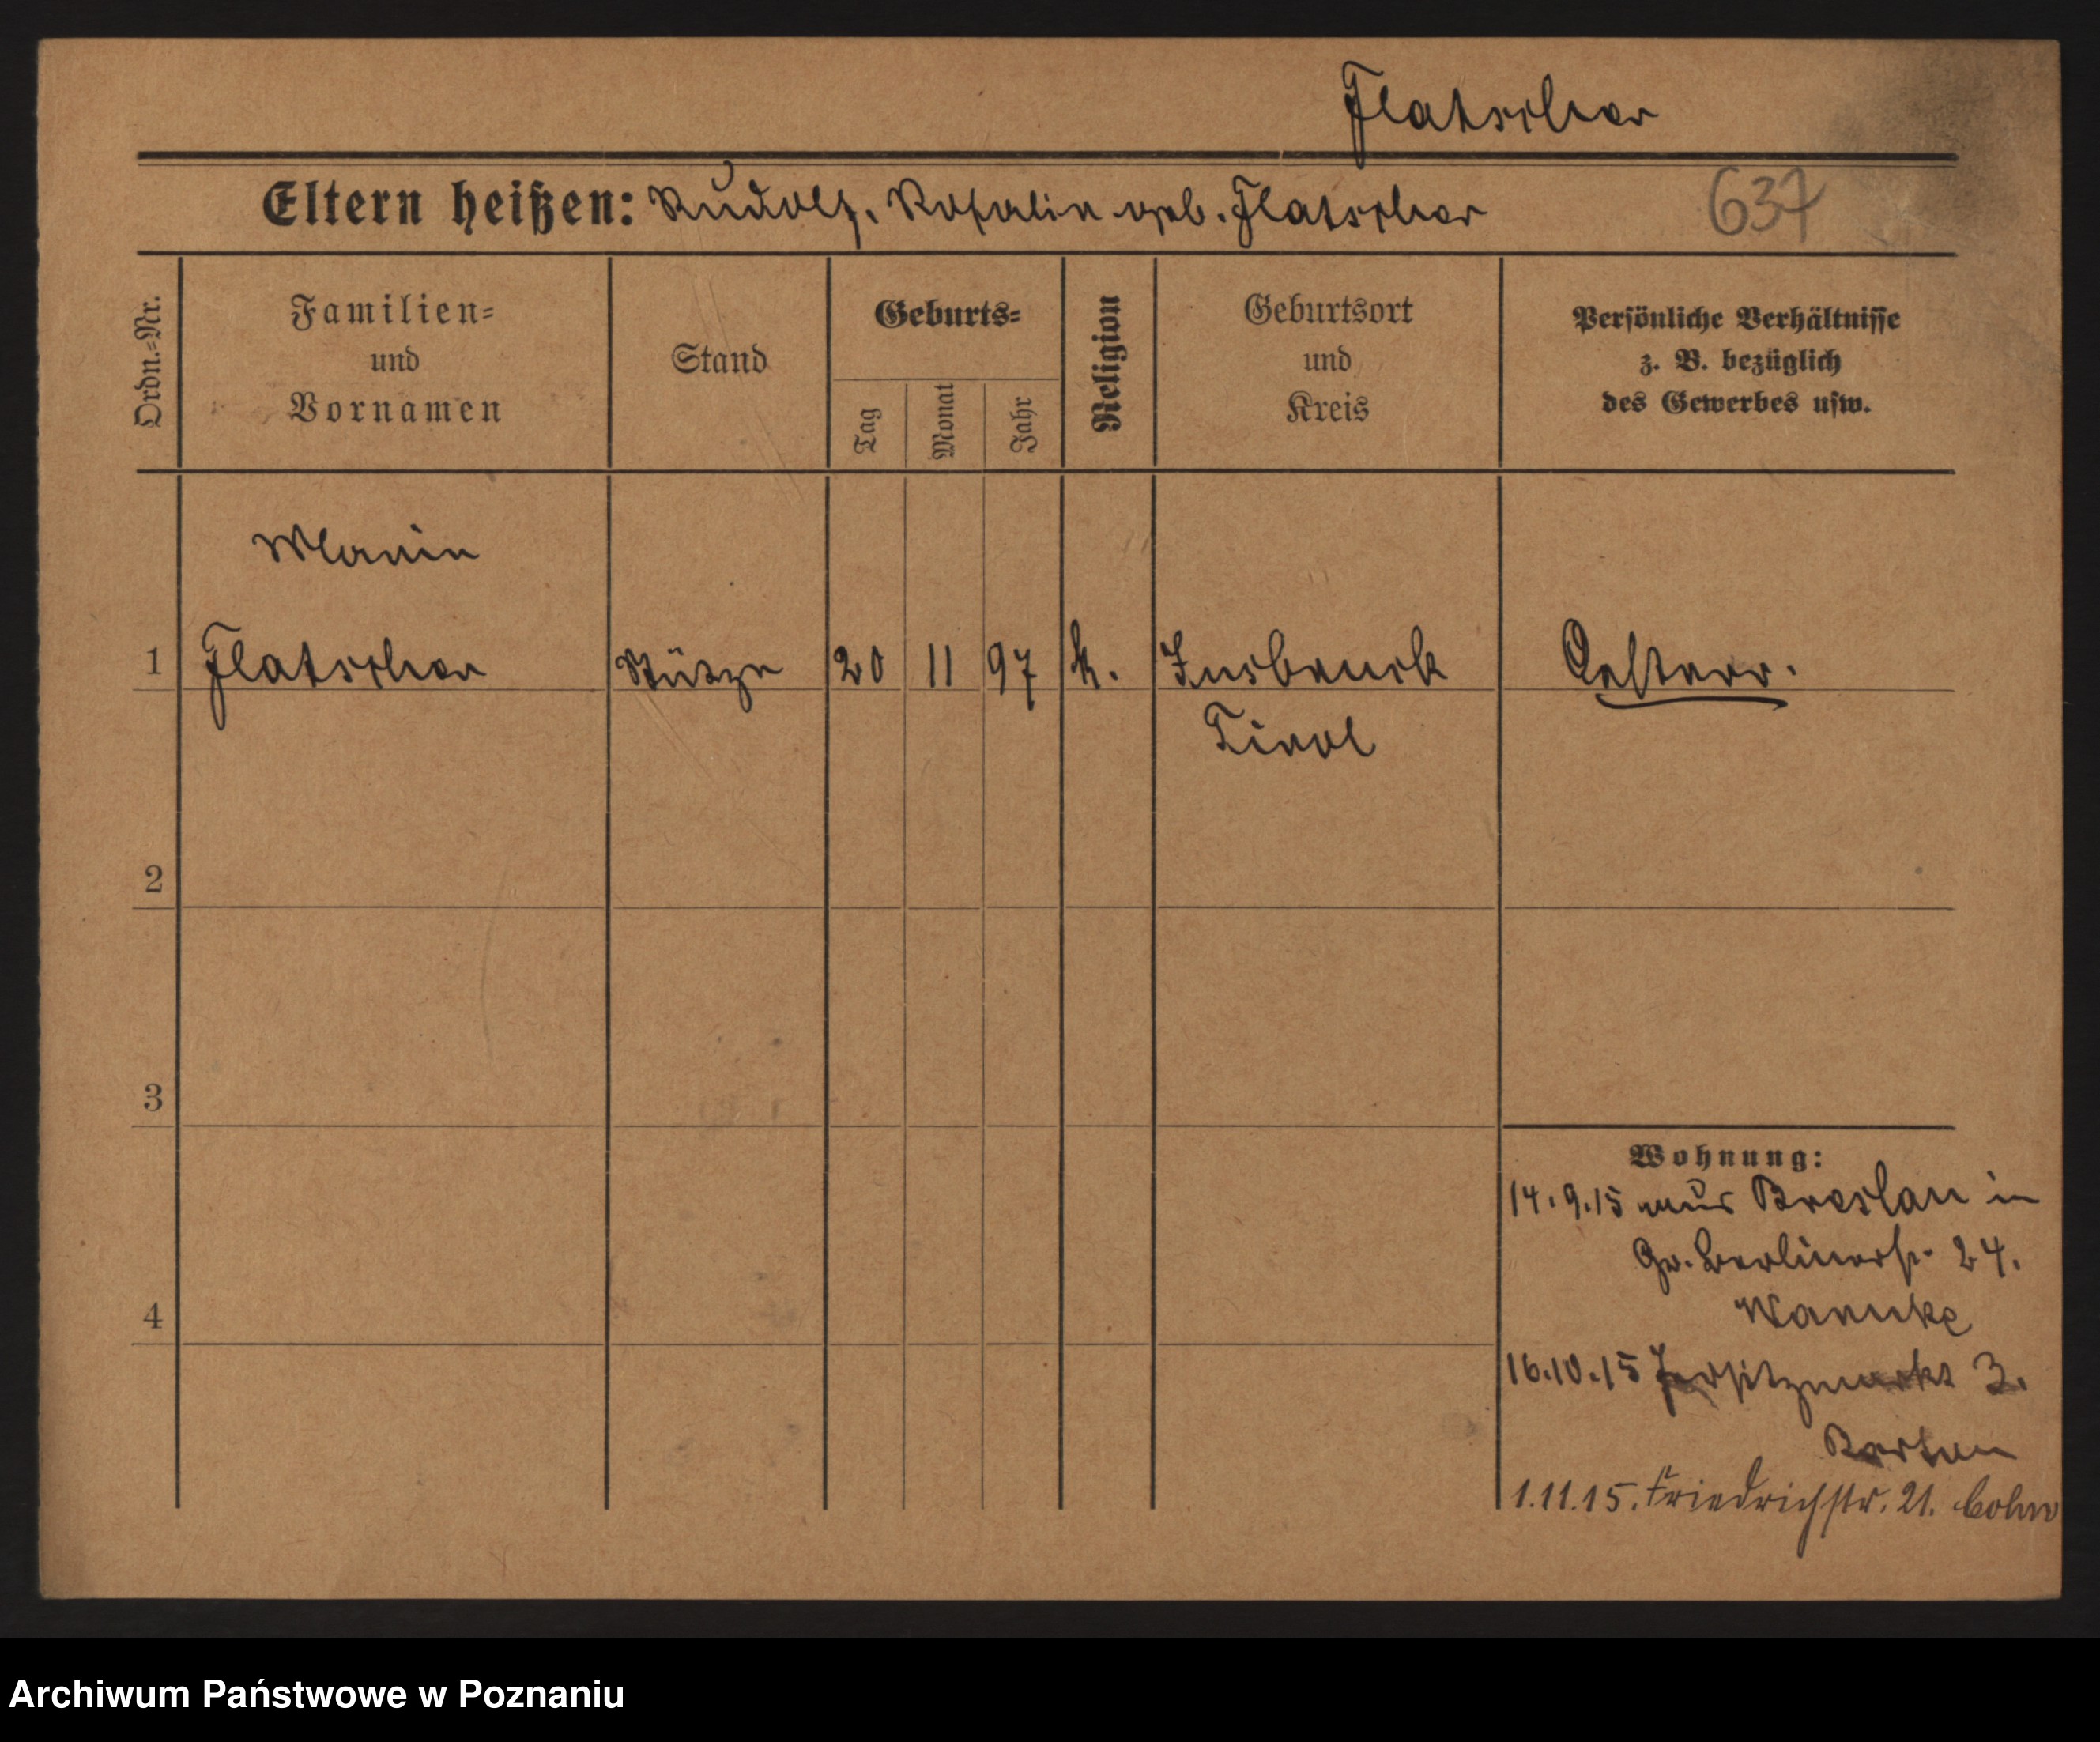 Flatscher
Eltern heißen: Rudolf, Rosalie geb. Flatscher
637
Ordn.=Nr.
Familien=
und
Vornamen
Stand
Geburts=
Tag
Monat
Jahr
Religion
Geburtsort
und
Kreis
Persönliche Verhältnisse
z. B. bezüglich
des Gewerbes usw.
Marie
1 Flatscher Stütze 20 11 97 k. Insbruck Oesterr.
Tirol
2
3
Wohnung:
14.9.15 aus Breslau in
Gr. Berlinerstr. 24.
4
Warnke
16.10.15 Jersitzmarkt 3.
1.11.15. Friedrichstr. 21. Cohn
Archiwum Państwowe w Poznaniu